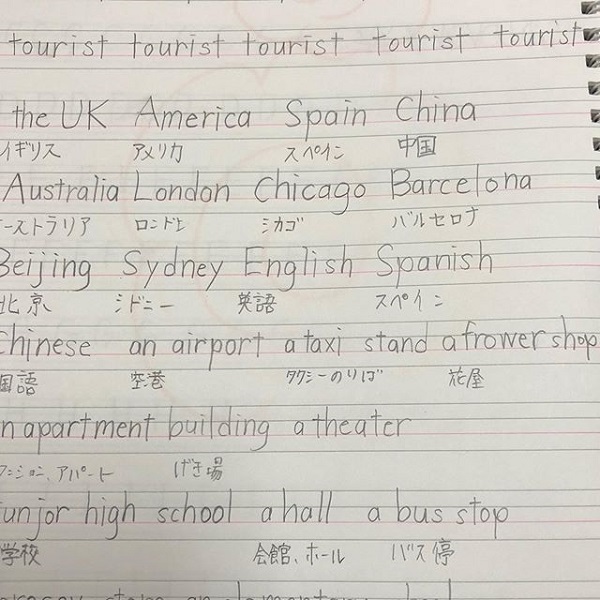 tourist tourist tourist tourist tourist
the UK America Spain China
イギリス アメリカ スペイン 中国
Australia London Chicago Barcelona
ーストラリア シカゴ バルセロナ
Beijing Sydney English Spanish
北京 シドニー 英語 スペイン
Chinese an airport a taxi stand a frower shop
国語 空港 タクシーのりば 花屋
n apartment building a theater
ンション、アパート げき場
junjor high school a hall a bus stop
学校 会館、ホール バス停